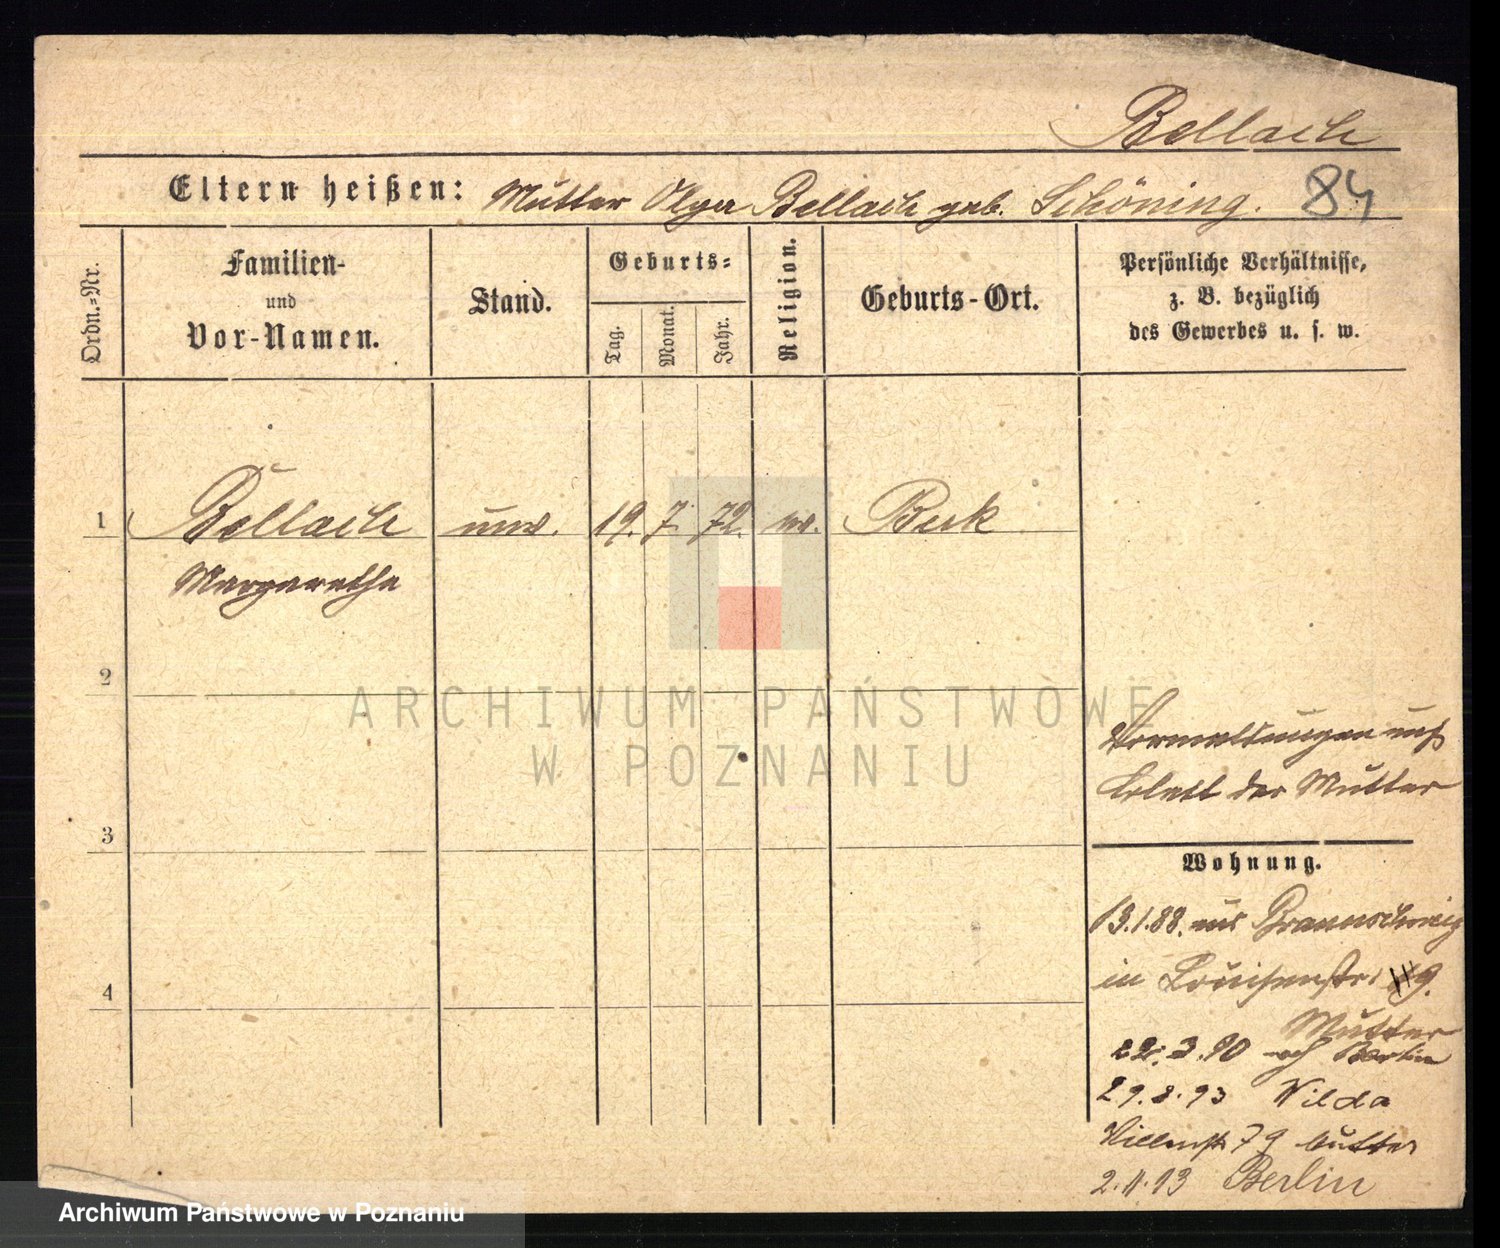 Bellach
Eltern heißen: Mutter Olga Bellach geb. Schöning.
84
Ordn.=Nr.
Familien-
und
Vor-Namen.
Stand.
Geburts=
Tag.
Monat.
Jahr.
Religion.
Geburts-Ort.
Persönliche Verhältnisse,
z. B. bezüglich
des Gewerbes u. s. w.
1 Bellach unv. 19. 7. 72. ev. Buk
Margarethe
2
ARCHIWUM PAŃSTWOWE
W POZNANIU
der Mutter
3
Wohnung.
13.1.88. aus Braunschweig
in Louisenstr. 9.
4
Mutter
22.3.90 nach Berlin
29.8.93 Wilda
79 Mutter
2.11.93 Berlin
Archiwum Państwowe w Poznaniu